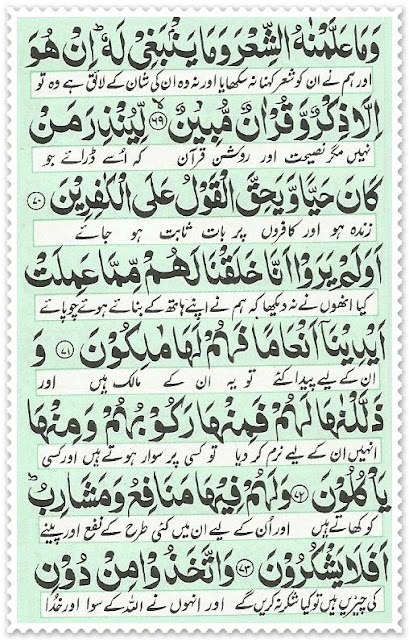 وَمَا عَلَّمْنٰهُ الشِّعْرَ وَمَا يَنْۢبَغِيْ لَهٗ ؕ اِنْ هُوَ
اور ہم نے ان کو شعر کہنا نہ سکھایا اور نہ وہ ان کی شان کے لائق ہے وہ تو
اِلَّا ذِكْرٌ وَّقُرْاٰنٌ مُّبِيْنٌ ﴿۶۹﴾ لِّيُنْذِرَ مَنْ
نہیں مگر نصیحت اور روشن قرآن کہ اُسے ڈرائے جو
كَانَ حَيًّا وَّيَحِقَّ الْقَوْلُ عَلَى الْكٰفِرِيْنَ ﴿۷۰﴾
زندہ ہو اور کافروں پر بات ثابت ہو جائے
اَوَلَمْ يَرَوْا اَنَّا خَلَقْنَا لَهُمْ مِّمَّا عَمِلَتْ
کیا انھوں نے نہ دیکھا کہ ہم نے اپنے ہاتھ کے بنائے ہوئے چوپائے
اَيْدِيْنَاۤ اَنْعَامًا فَهُمْ لَهَا مٰلِكُوْنَ ﴿۷۱﴾ وَ
ان کے لیے پیدا کئے تو یہ ان کے مالک ہیں اور
ذَلَّلْنٰهَا لَهُمْ فَمِنْهَا رَكُوْبُهُمْ وَمِنْهَا
انہیں ان کے لیے نرم کر دیا تو کسی پر سوار ہوتے ہیں اور کسی
يَاْكُلُوْنَ ﴿۷۲﴾ وَلَهُمْ فِيْهَا مَنَافِعُ وَمَشَارِبُ ؕ
کو کھاتے ہیں اور اُن کے لیے ان میں کئی طرح کے نفع اور پینے
اَفَلَا يَشْكُرُوْنَ ﴿۷۳﴾ وَاتَّخَذُوْا مِنْ دُوْنِ
کی چیزیں ہیں تو کیا شکر نہ کریں گے اور انہوں نے اللہ کے سوا اور خدا